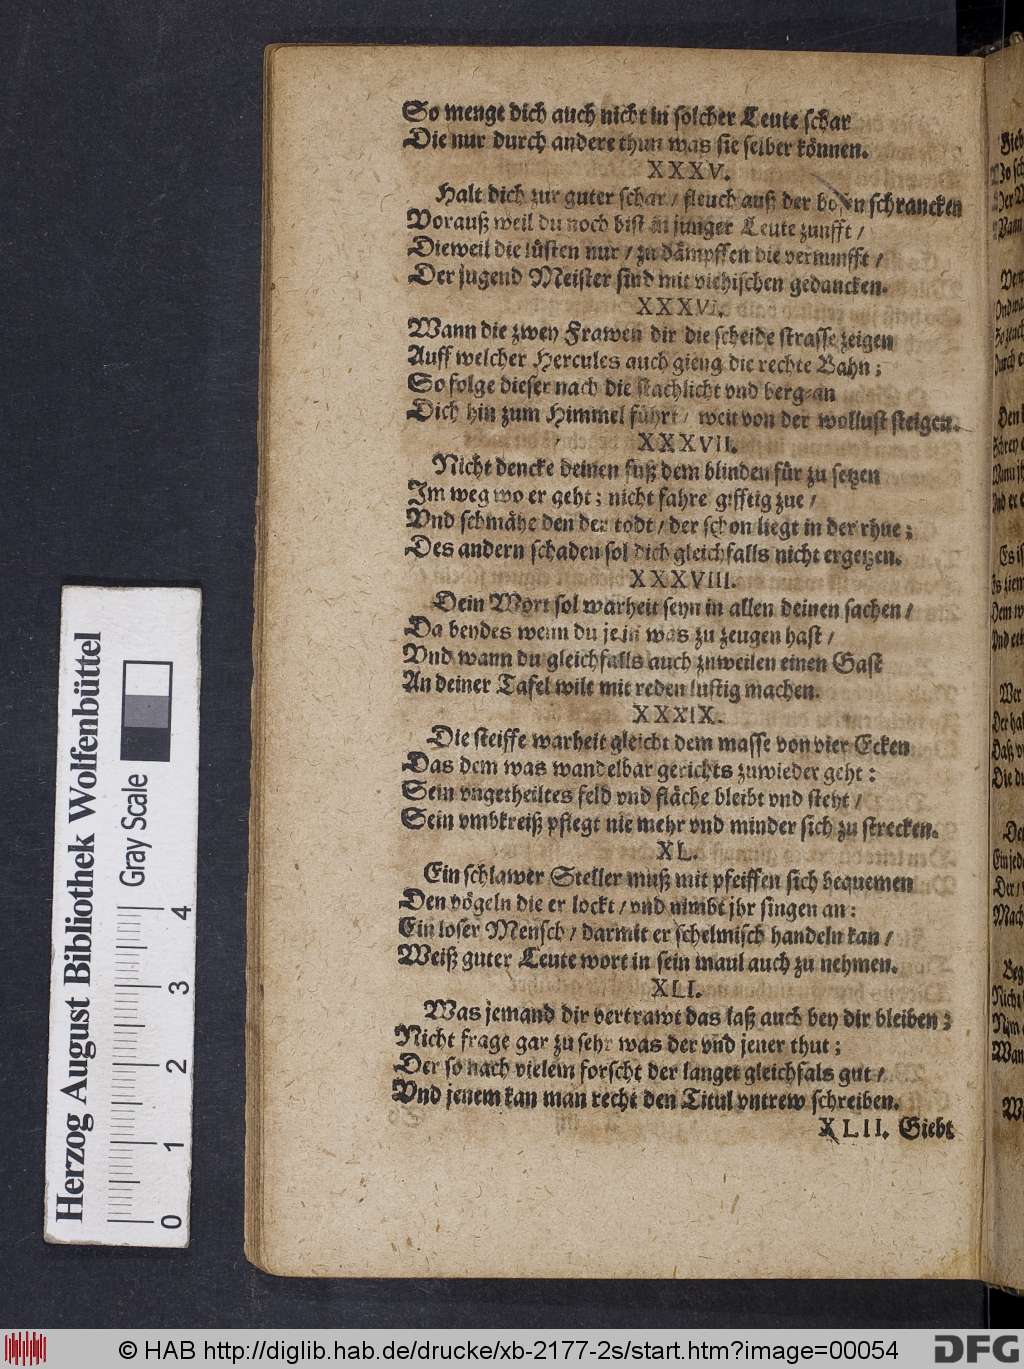 So menge dich auch nicht in solcher Leute schar
Die nur durch andere thun was sie selber können.
XXXV.
Halt dich zur guter schar / fleuch auß der bösen schrancken
Vorauß weil du noch bist in junger Leute zunfft /
Dieweil die lüsten nur / zu dämpffen die vernunfft /
Der jugend Meister sind mit viehischen gedancken.
XXXVI.
Wann die zwey Frawen dir die scheide strasse zeigen
Auff welcher Hercules auch gieng die rechte Bahn ;
So folge dieser nach die stachlicht vnd berg-an
Dich hin zum Himmel führt / weit von der wollust steigen.
XXXVII.
Nicht dencke deinen fuß dem blinden für zu setzen
Im weg wo er geht ; nicht fahre gifftig zue /
Vnd schmähe den der todt / der schon liegt in der rhue ;
Des andern schaden sol dich gleichfalls nicht ergetzen.
XXXVIII.
Dein Wort sol warheit seyn in allen deinen sachen /
Da beydes wenn du jejn was zu zeugen hast /
Vnd wann du gleichfalls auch zuweilen einen Gast
An deiner Tafel wilt mit reden lustig machen.
XXXIX.
Die steiffe warheit gleicht dem masse von vier Ecken
Das dem was wandelbar gerichts zuwieder geht :
Sein vngetheiltes feld vnd fläche bleibt vnd steht /
Sein vmbkreiß pflegt nie mehr vnd minder sich zu strecken.
XL.
Ein schlawer Steller muß mit pfeiffen sich bequemen
Den vögeln die er lockt / vnd nimbt jhr singen an :
Ein loser Mensch / darmit er schelmisch handeln kan /
Weiß guter Leute wort in sein maul auch zu nehmen.
XLI.
Was jemand dir vertrawt das laß auch bey dir bleiben ;
Nicht frage gar zu sehr was der vnd jener thut ;
Der so nach vielem forscht der langet gleichfals gut /
Vnd jenem kan man recht den Titul vntrew schreiben.
XLII. Giebt
Herzog August Bibliothek Wolfenbüttel
Gray Scale
0 1 2 3 4
© HAB http://diglib.hab.de/drucke/xb-2177-2s/start.htm?image=00054
DFG